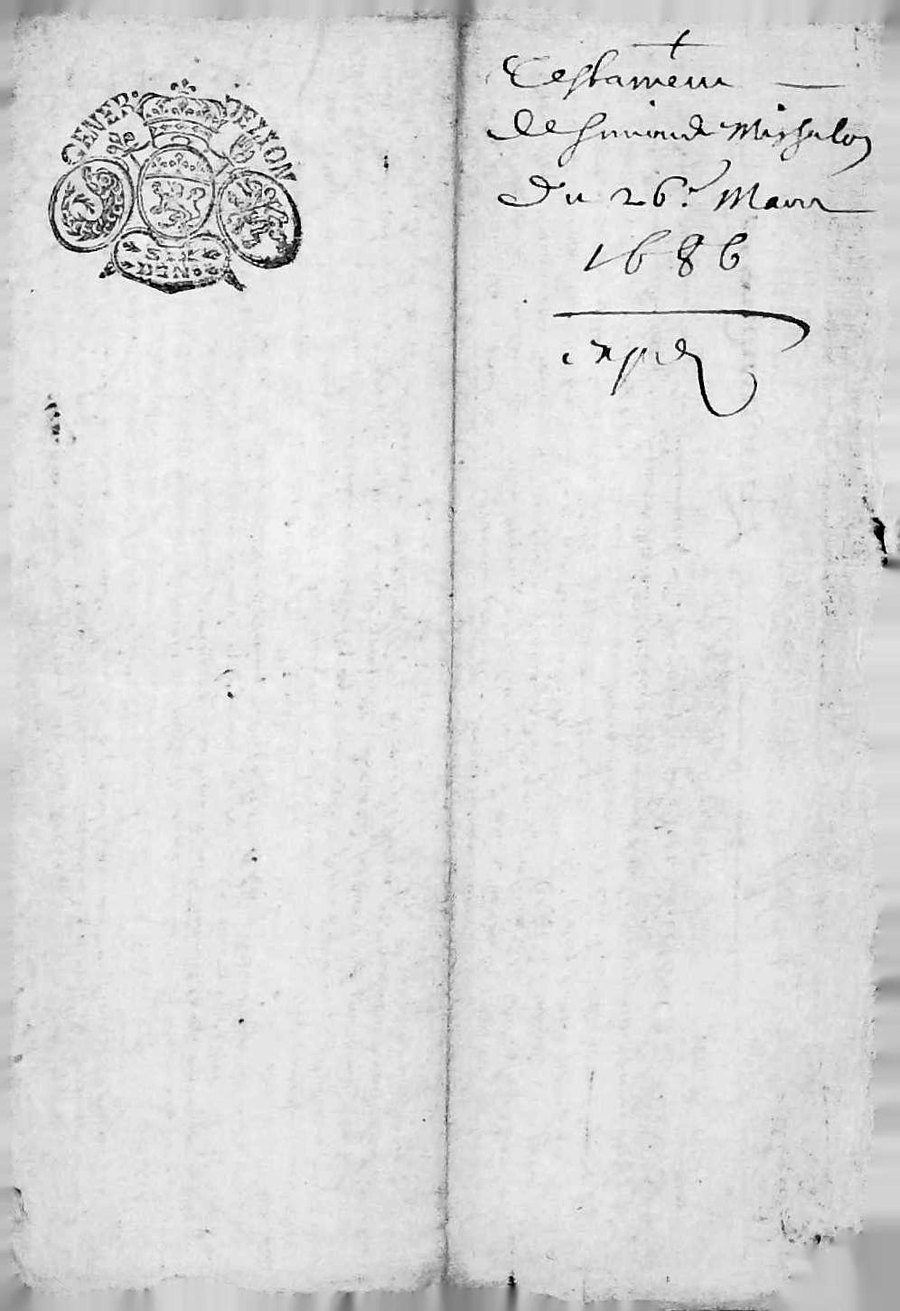 GENER. DE LYON
SIX
DEN.
Testament
de Simonde Michalon
Du 26e. Mars
1686
expé